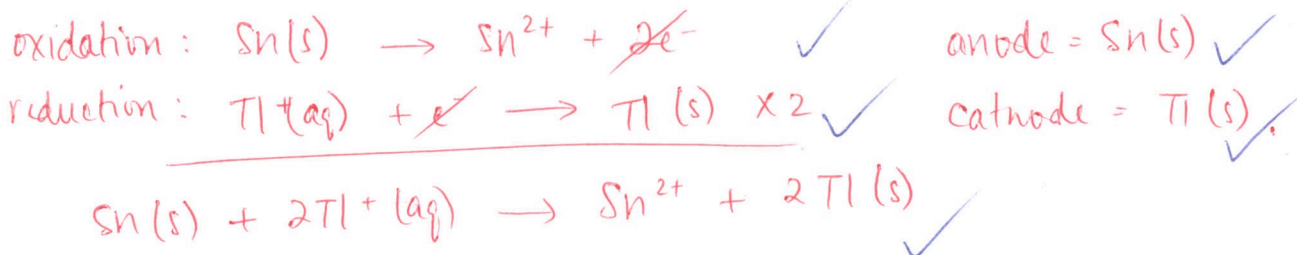 oxidation: Sn(s) → Sn²⁺ + 2e⁻ anode = Sn(s)
reduction: Tl⁺(aq) + e⁻ → Tl(s) x2 cathode = Tl(s).
Sn(s) + 2Tl⁺(aq) → Sn²⁺ + 2Tl(s)